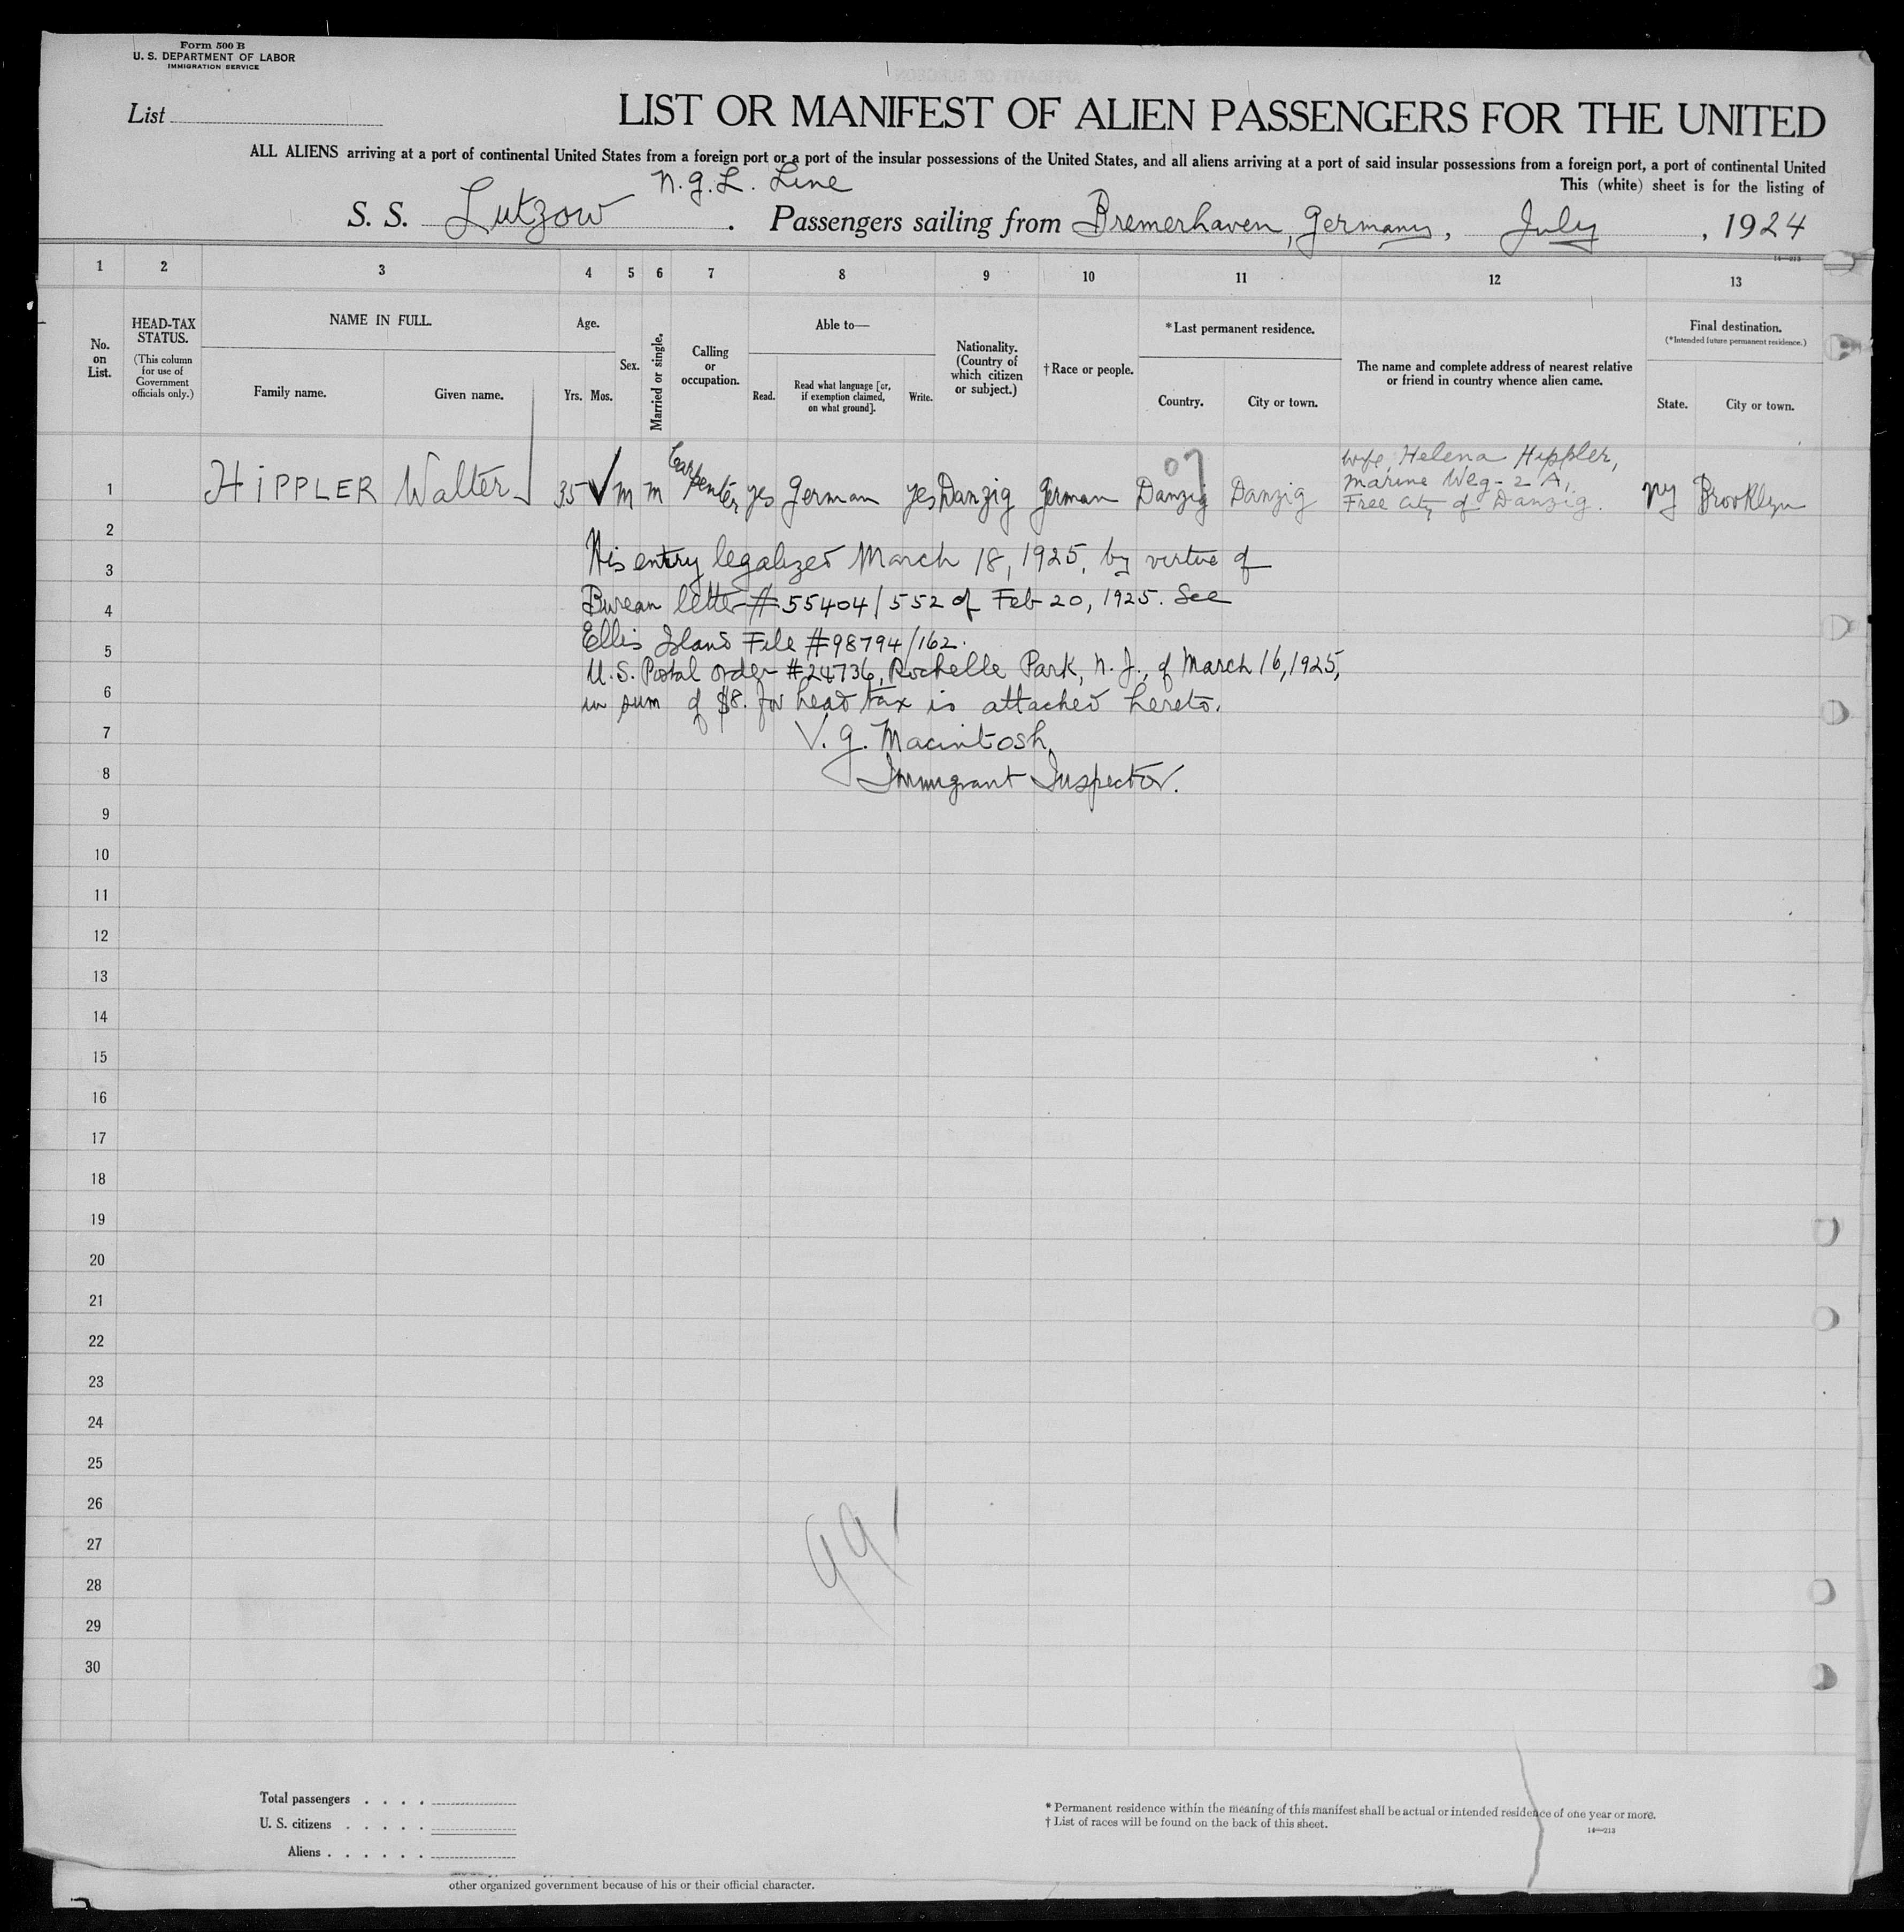 Form 500 B
U. S. DEPARTMENT OF LABOR
IMMIGRATION SERVICE
List
LIST OR MANIFEST OF ALIEN PASSENGERS FOR THE UNITED
ALL ALIENS arriving at a port of continental United States from a foreign port or a port of the insular possessions of the United States, and all aliens arriving at a port of said insular possessions from a foreign port, a port of continental United
This (white) sheet is for the listing of
N. G. L. Line
S. S. Lutzow . Passengers sailing from Bremerhaven, Germany, July , 1924
14—213
1 2 3 4 5 6 7 8 9 10 11 12 13
No. on List.
HEAD-TAX STATUS.
(This column for use of Government officials only.)
NAME IN FULL.
Family name.
Given name.
Age.
Yrs. Mos.
Sex.
Married or single.
Calling or occupation.
Able to—
Read.
Read what language [or, if exemption claimed, on what ground].
Write.
Nationality. (Country of which citizen or subject.)
† Race or people.
* Last permanent residence.
Country.
City or town.
The name and complete address of nearest relative or friend in country whence alien came.
Final destination.
(* Intended future permanent residence.)
State.
City or town.
1 HIPPLER Walter 35 ✓ m m Carpenter yes German yes Danzig German Danzig Danzig wife, Helena Hippler, Marine Weg - 2 A, Free City of Danzig. NY Brooklyn
07
2
3 His entry legalized March 18, 1925, by virtue of
4 Bureau letter # 55404/552 of Feb 20, 1925. See
5 Ellis Island File # 98794/162.
U.S. Postal order # 24736, Rochelle Park, N. J., of March 16, 1925,
6 in sum of $8. for head tax is attached hereto.
7 V. G. Macintosh,
8 Immigrant Inspector.
9
10
11
12
13
14
15
16
17
18
19
20
21
22
23
24
25
26
27
99
28
29
30
Total passengers . . . .
U. S. citizens . . . . .
Aliens . . . . . .
* Permanent residence within the meaning of this manifest shall be actual or intended residence of one year or more.
† List of races will be found on the back of this sheet.
14—213
other organized government because of his or their official character.